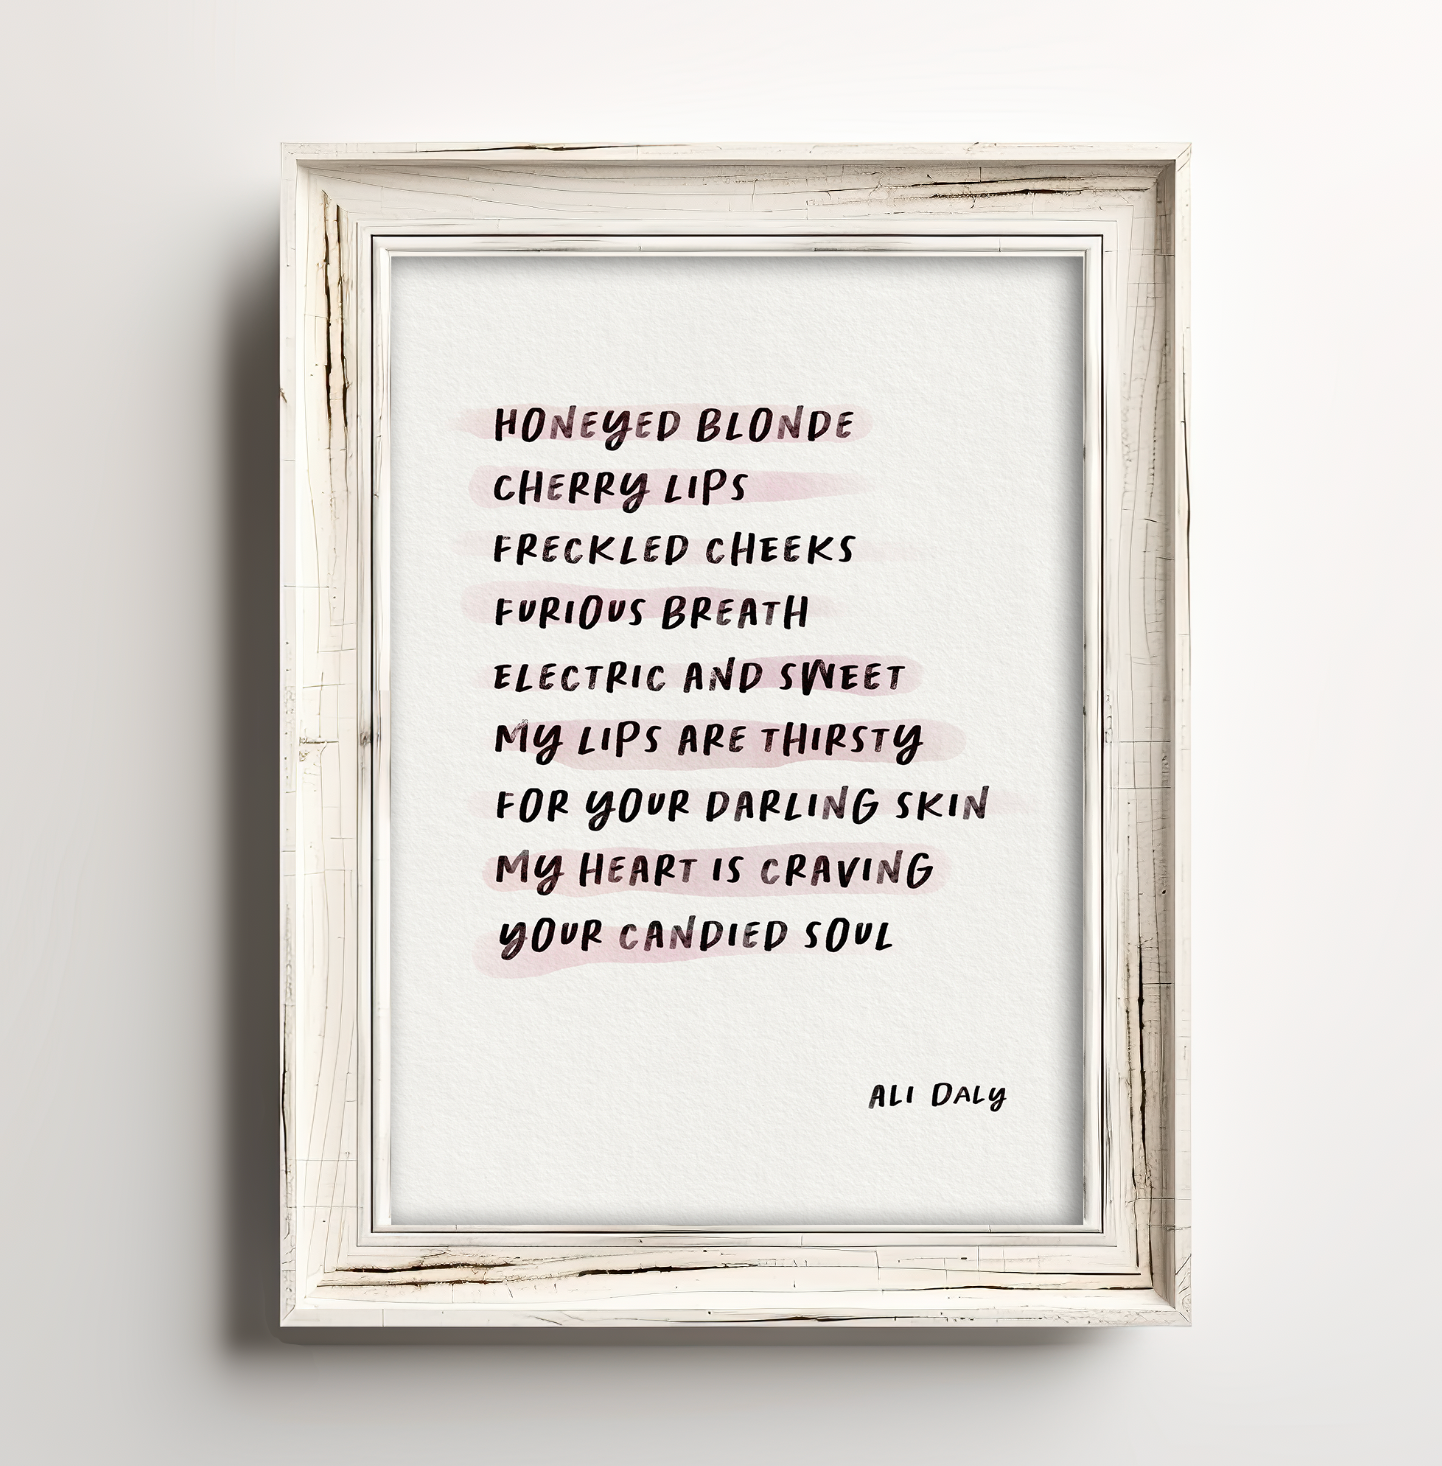 HONEYED BLONDE
CHERRY LIPS
FRECKLED CHEEKS
FURIOUS BREATH
ELECTRIC AND SWEET
MY LIPS ARE THIRSTY
FOR YOUR DARLING SKIN
MY HEART IS CRAVING
YOUR CANDIED SOUL
ALI DALY